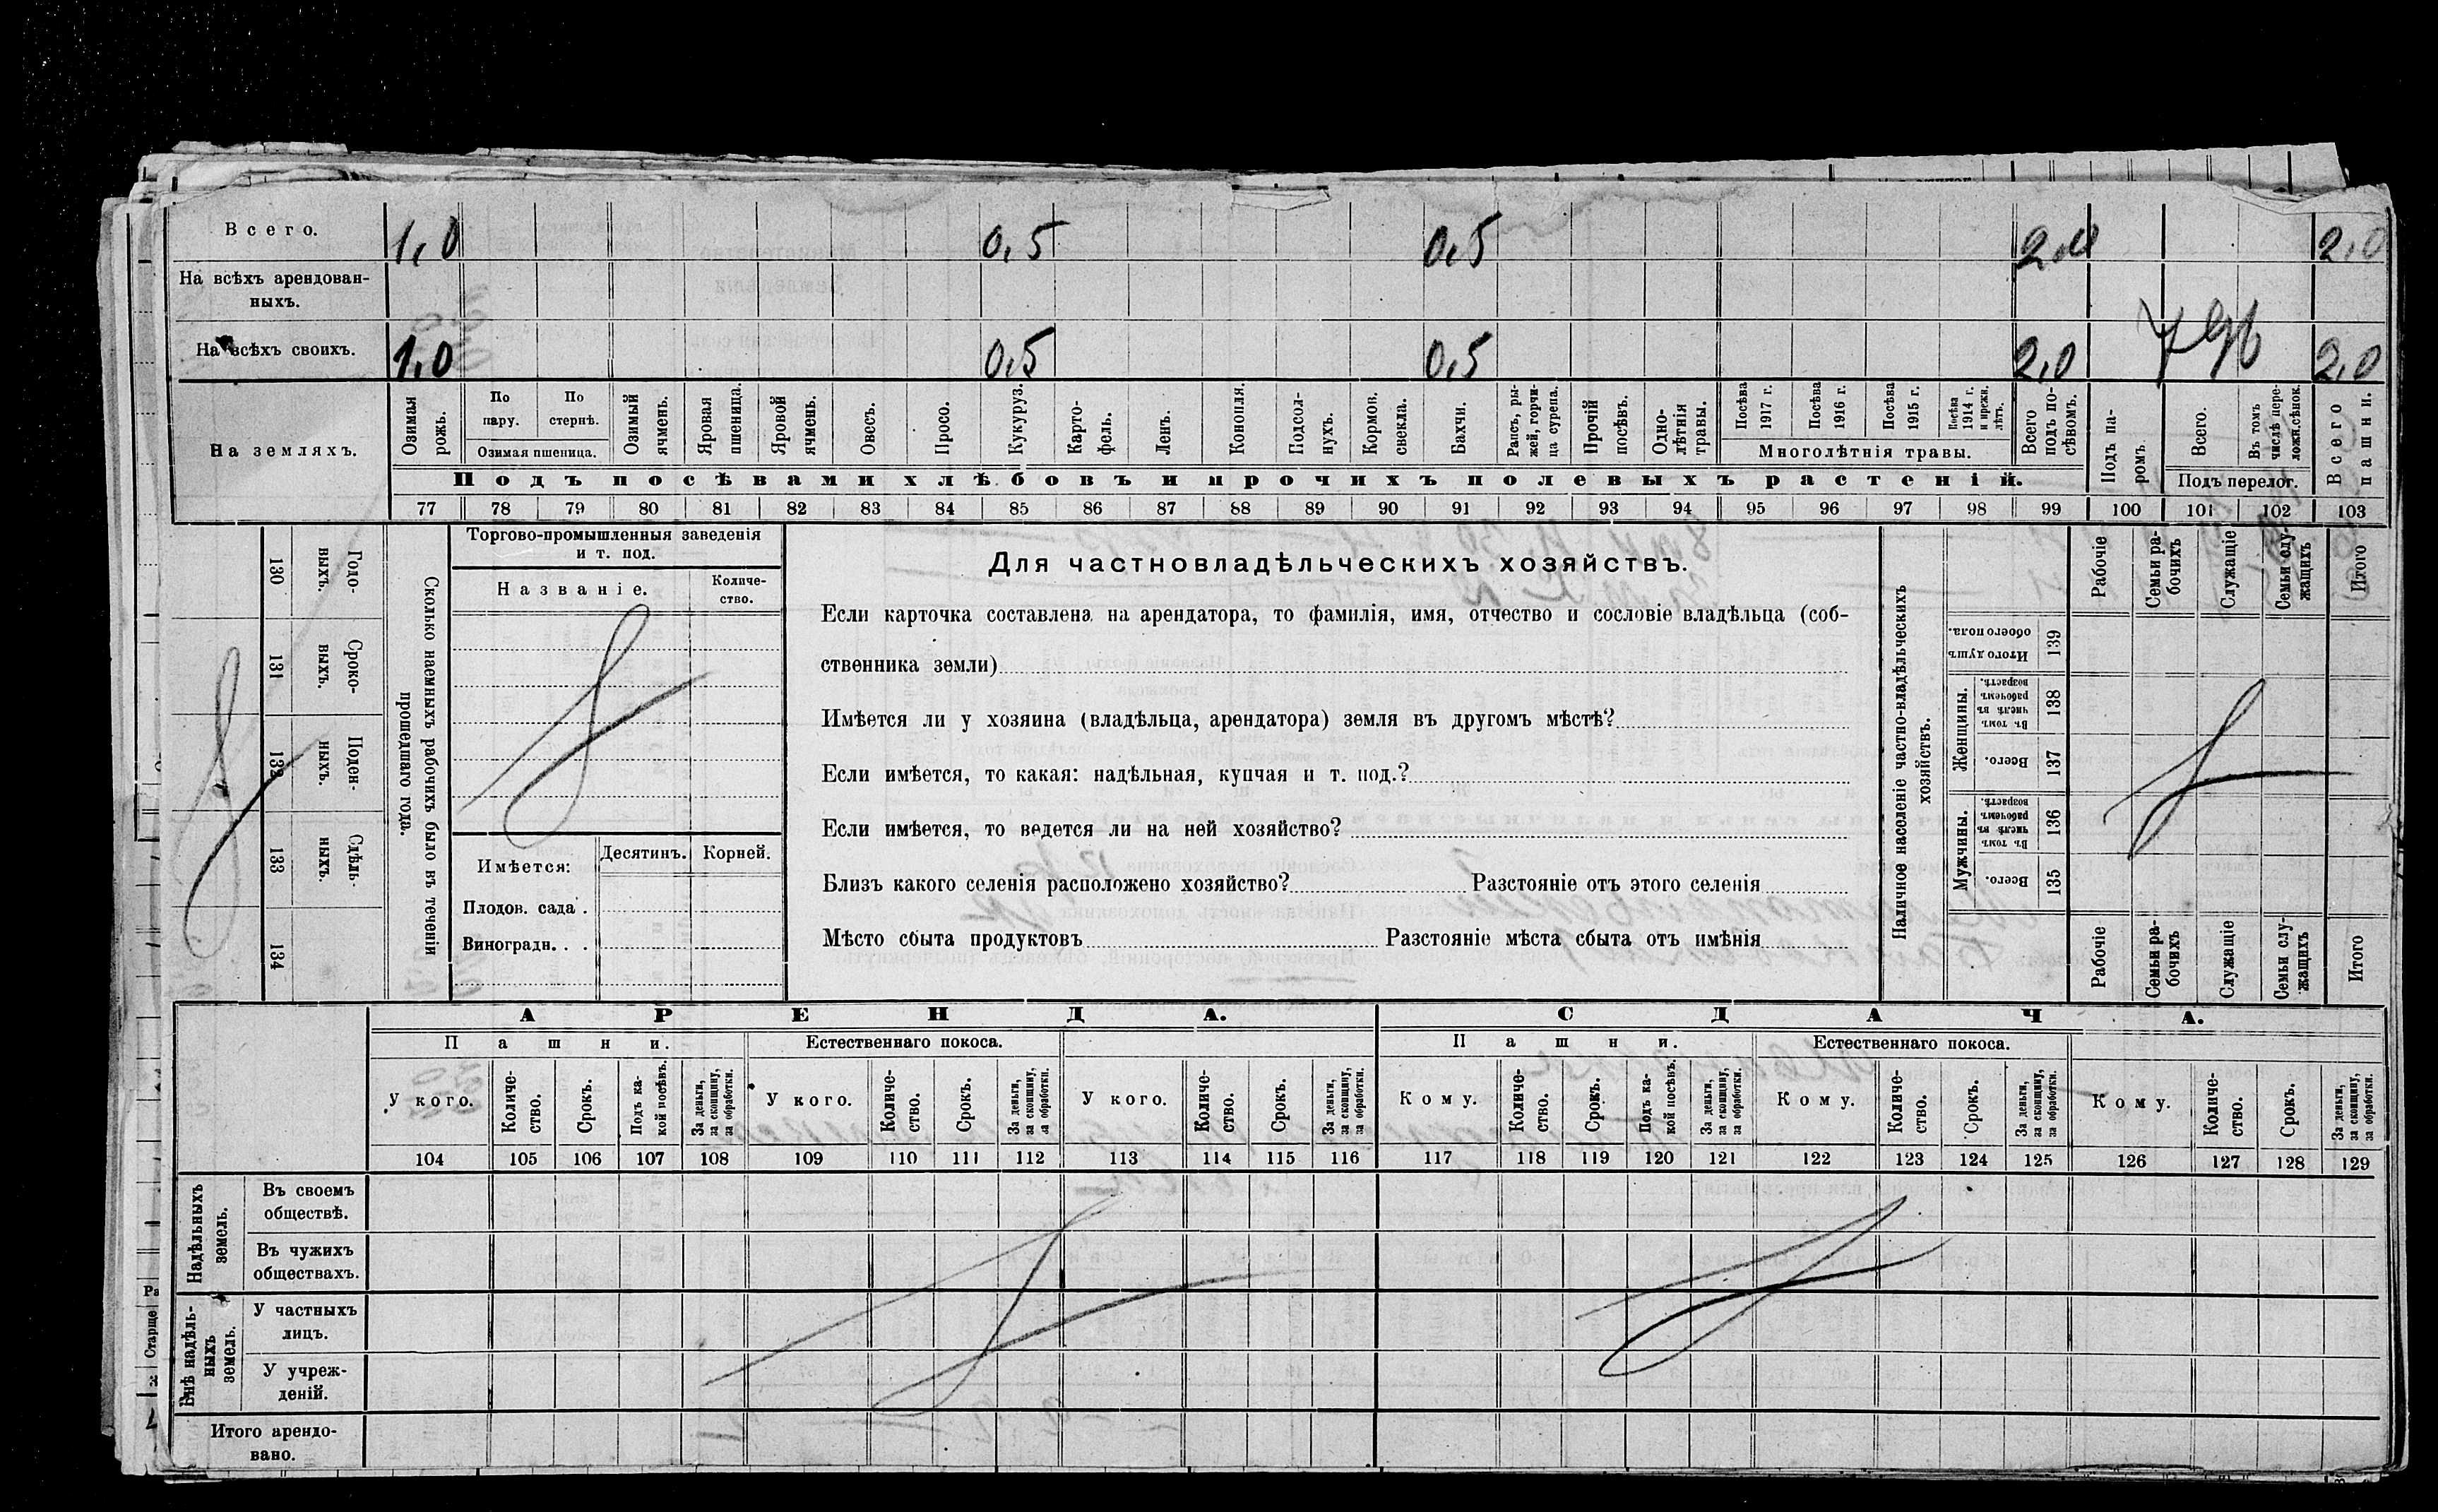 Всего. 1,0 0,5 0,5 2,0 2,0
На всѣхъ арендован-
ныхъ.
На всѣхъ своихъ. 1,0 0,5 0,5 2,0 2,0
На земляхъ.
Озимая рожь.
По пару.
По стернѣ.
Озимая пшеница.
Озимый ячмень.
Яровая пшеница.
Яровой ячмень.
Овесъ.
Просо.
Кукуруз.
Карто-
фель.
Ленъ.
Конопля.
Подсол-
нухъ.
Кормов. свекла.
Бахчи.
Рапсъ, ры-
жей, горчи-
ца сурепа.
Прочій посѣвъ.
Одно-
лѣтнія травы.
Посѣва 1917 г.
Посѣва 1916 г.
Посѣва 1915 г.
Посѣва 1914 г. и прежн. лѣтъ.
Многолѣтнія травы.
Всего подъ по-
сѣвомъ.
Подъ па-
ромъ.
Всего.
Въ томъ числѣ пере-
ложн.сѣнок.
Подъ перелог.
Всего пашни.
Подъ посѣвами хлѣбовъ и прочихъ полевыхъ растеній.
77 78 79 80 81 82 83 84 85 86 87 88 89 90 91 92 93 94 95 96 97 98 99 100 101 102 103
Сколько наемныхъ рабочихъ было въ теченіи
прошедшаго года.
Годо-
выхъ.
130
Сроко-
выхъ.
131
Поден-
ныхъ.
132
Сдѣль-
ныхъ.
133
134
Торгово-промышленныя заведенія
и т. под.
Названіе.
Количе-
ство.
Имѣется:
Десятинъ.
Корней.
Плодов. сада.
Виноградн. . .
Для частновладѣльческихъ хозяйствъ.
Если карточка составлена на арендатора, то фамилія, имя, отчество и сословіе владѣльца (соб-
ственника земли)
Имѣется ли у хозяина (владѣльца, арендатора) земля въ другомъ мѣстѣ?
Если имѣется, то какая: надѣльная, купчая и т. под.?
Если имѣется, то ведется ли на ней хозяйство?
Близъ какого селенія расположено хозяйство? Разстояніе отъ этого селенія
Мѣсто сбыта продуктовъ Разстояніе мѣста сбыта отъ имѣнія
Наличное населеніе частно-владѣльческихъ
хозяйствъ.
Рабочіе
Семьи ра-
бочихъ
Служащіе
Семьи слу-
жащихъ
Итого
Итого душъ обоего пола.
139
Женщины.
Въ томъ числѣ въ рабочемъ возрастѣ.
138
Всего.
137
Мужчины.
Въ томъ числѣ въ рабочемъ возрастѣ.
136
Всего.
135
Рабочіе
Семьи ра-
бочихъ
Служащіе
Семьи слу-
жащихъ
Итого
АРЕНДА. СДАЧА.
Пашни. Естественнаго покоса. Пашни. Естественнаго покоса.
У кого.
Количе-
ство.
Срокъ.
Подъ ка-
кой посѣвъ.
За деньги, за скопщину, за обработки.
У кого.
Количе-
ство.
Срокъ.
За деньги, за скопщину, за обработки.
У кого.
Количе-
ство.
Срокъ.
За деньги, за скопщину, за обработки.
Кому.
Количе-
ство.
Срокъ.
Подъ ка-
кой посѣвъ.
За деньги, за скопщину, за обработки.
Кому.
Количе-
ство.
Срокъ.
За деньги, за скопщину, за обработки.
Кому.
Количе-
ство.
Срокъ.
За деньги, за скопщину, за обработки.
104 105 106 107 108 109 110 111 112 113 114 115 116 117 118 119 120 121 122 123 124 125 126 127 128 129
Надѣльныхъ
земель.
Въ своемъ
обществѣ.
Въ чужихъ
обществахъ.
Внѣ надѣль-
ныхъ
земель.
У частныхъ
лицъ.
У учреж-
деній.
Итого арендо-
вано.